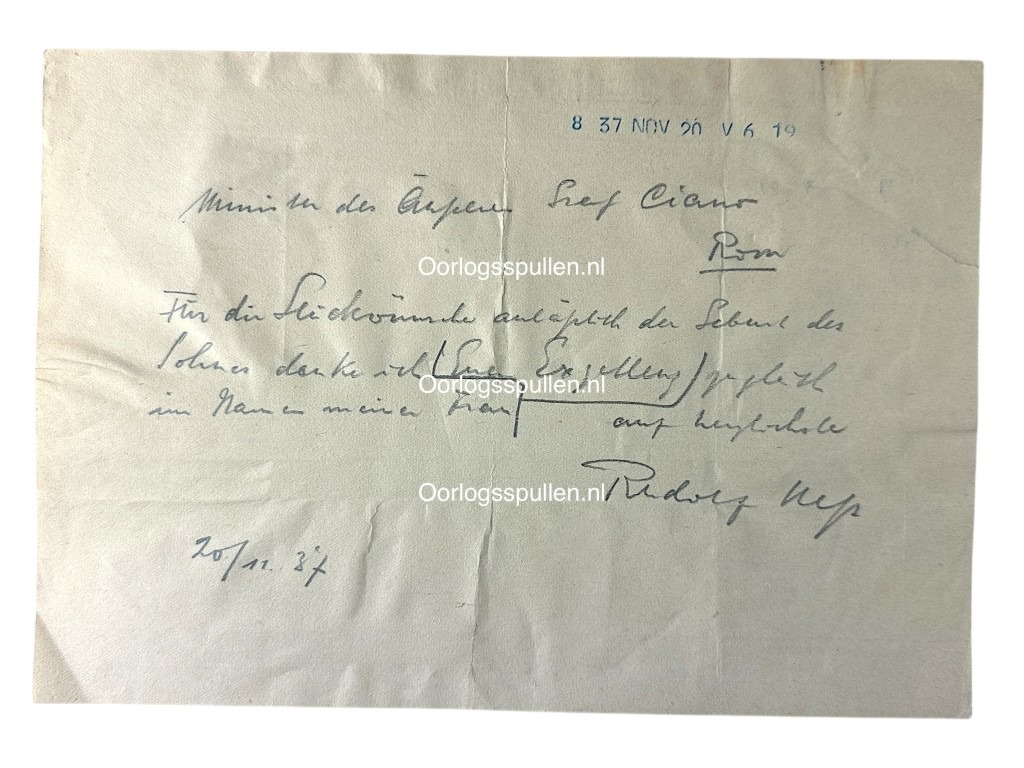 8 37 NOV 20 V 6 19
Minister des Äußeren Graf Ciano
Rom
Oorlogsspullen.nl
Für die Glückwünsche anläßlich der Geburt des
Sohnes danke ich (Euer Exzellenz)
im Namen meiner Frau auf herzlichste
Rudolf Heß
Oorlogsspullen.nl
20/11. 37